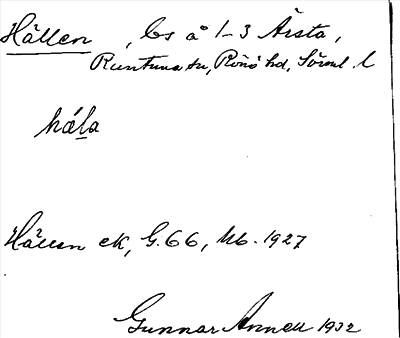 Hällen, ls å 1-3 Årsta,
Runtuna sn, Rönö hd, Söreml. l
hála
Hällen ek, G.66, Ub. 1927
Gunnar Annell 1932